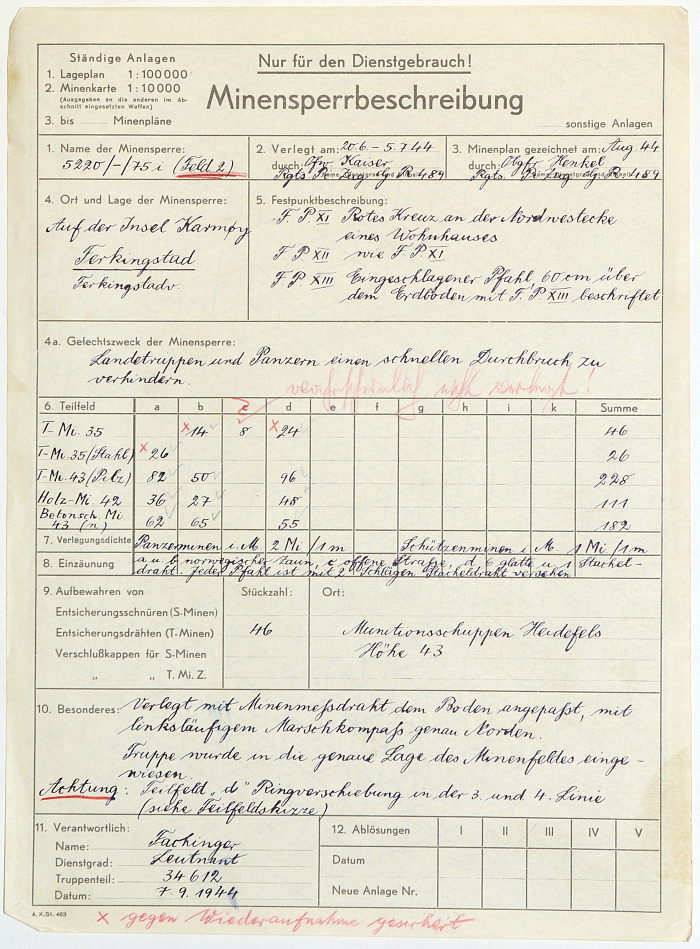 Ständige Anlagen
1. Lageplan 1:100000
2. Minenkarte 1:10000
(Ausgegeben an die anderen im Ab-
schnitt eingesetzten Waffen)
3. bis Minenpläne
Nur für den Dienstgebrauch!
Minensperrbeschreibung
sonstige Anlagen
1. Name der Minensperre:
5220/-/75 i (Feld 2)
2. Verlegt am: 20.6. - 5.7.44
durch: Ofw. Kaiser
Rgts. Pi. Zug Rgt. 489
3. Minenplan gezeichnet am: Aug 44
durch: Obgfr. Henkel
Rgts. Pi. Zug Rgt. 489
4. Ort und Lage der Minensperre:
Auf der Insel Karmøy
Ferkingstad
Ferkingstadv.
5. Festpunktbeschreibung:
F. P. XI Rotes Kreuz an der Nordwestecke
eines Wohnhauses
F. P. XII wie F. P. XI
F. P. XIII Eingeschlagener Pfahl, 60 cm über
dem Erdboden mit F. P. XIII beschriftet
4a. Gefechtszweck der Minensperre:
Landetruppen und Panzern einen schnellen Durchbruch zu
verhindern.
wahrscheinlich nicht verlegt!
6. Teilfeld a b c d e f g h i k Summe
T-Mi. 35 x 14 8 x 24 46
T-Mi. 35 (Stahl) x 26 26
T-Mi. 43 (Pilz) 82 50 96 228
Holz-Mi. 42 36 27 48 111
Betonsch. Mi.
43 (n) 62 65 55 182
7. Verlegungsdichte Panzerminen i. M. 2 Mi/1m Schützenminen i. M. 1 Mi/1m
8. Einzäunung a u. b norwegischer Zaun, c offene Straße, d 6 glatte u. 1 Stachel-
draht. Jeder Pfahl ist mit 2 Schlägen Stacheldraht versehen
9. Aufbewahren von
Entsicherungsschnüren (S-Minen)
Entsicherungsdrähten (T-Minen)
Verschlußkappen für S-Minen
„ „ T. Mi. Z.
Stückzahl:
46
Ort:
Munitionsschuppen Heidefels
Höhe 43
10. Besonderes: Verlegt mit Minenmeßdraht dem Boden angepaßt, mit
linksläufigem Marschkompaß genau Norden.
Truppe wurde in die genaue Lage des Minenfeldes einge-
wiesen.
Achtung: Teilfeld „d" Ringverschiebung in der 3. und 4. Linie
(siehe Teilfeldskizze)
11. Verantwortlich:
Name: Fachinger
Dienstgrad: Leutnant
Truppenteil: 34612
Datum: 7.9.1944
12. Ablösungen I II III IV V
Datum
Neue Anlage Nr.
A. K. St. 463
x gegen Wiederaufnahme gesichert